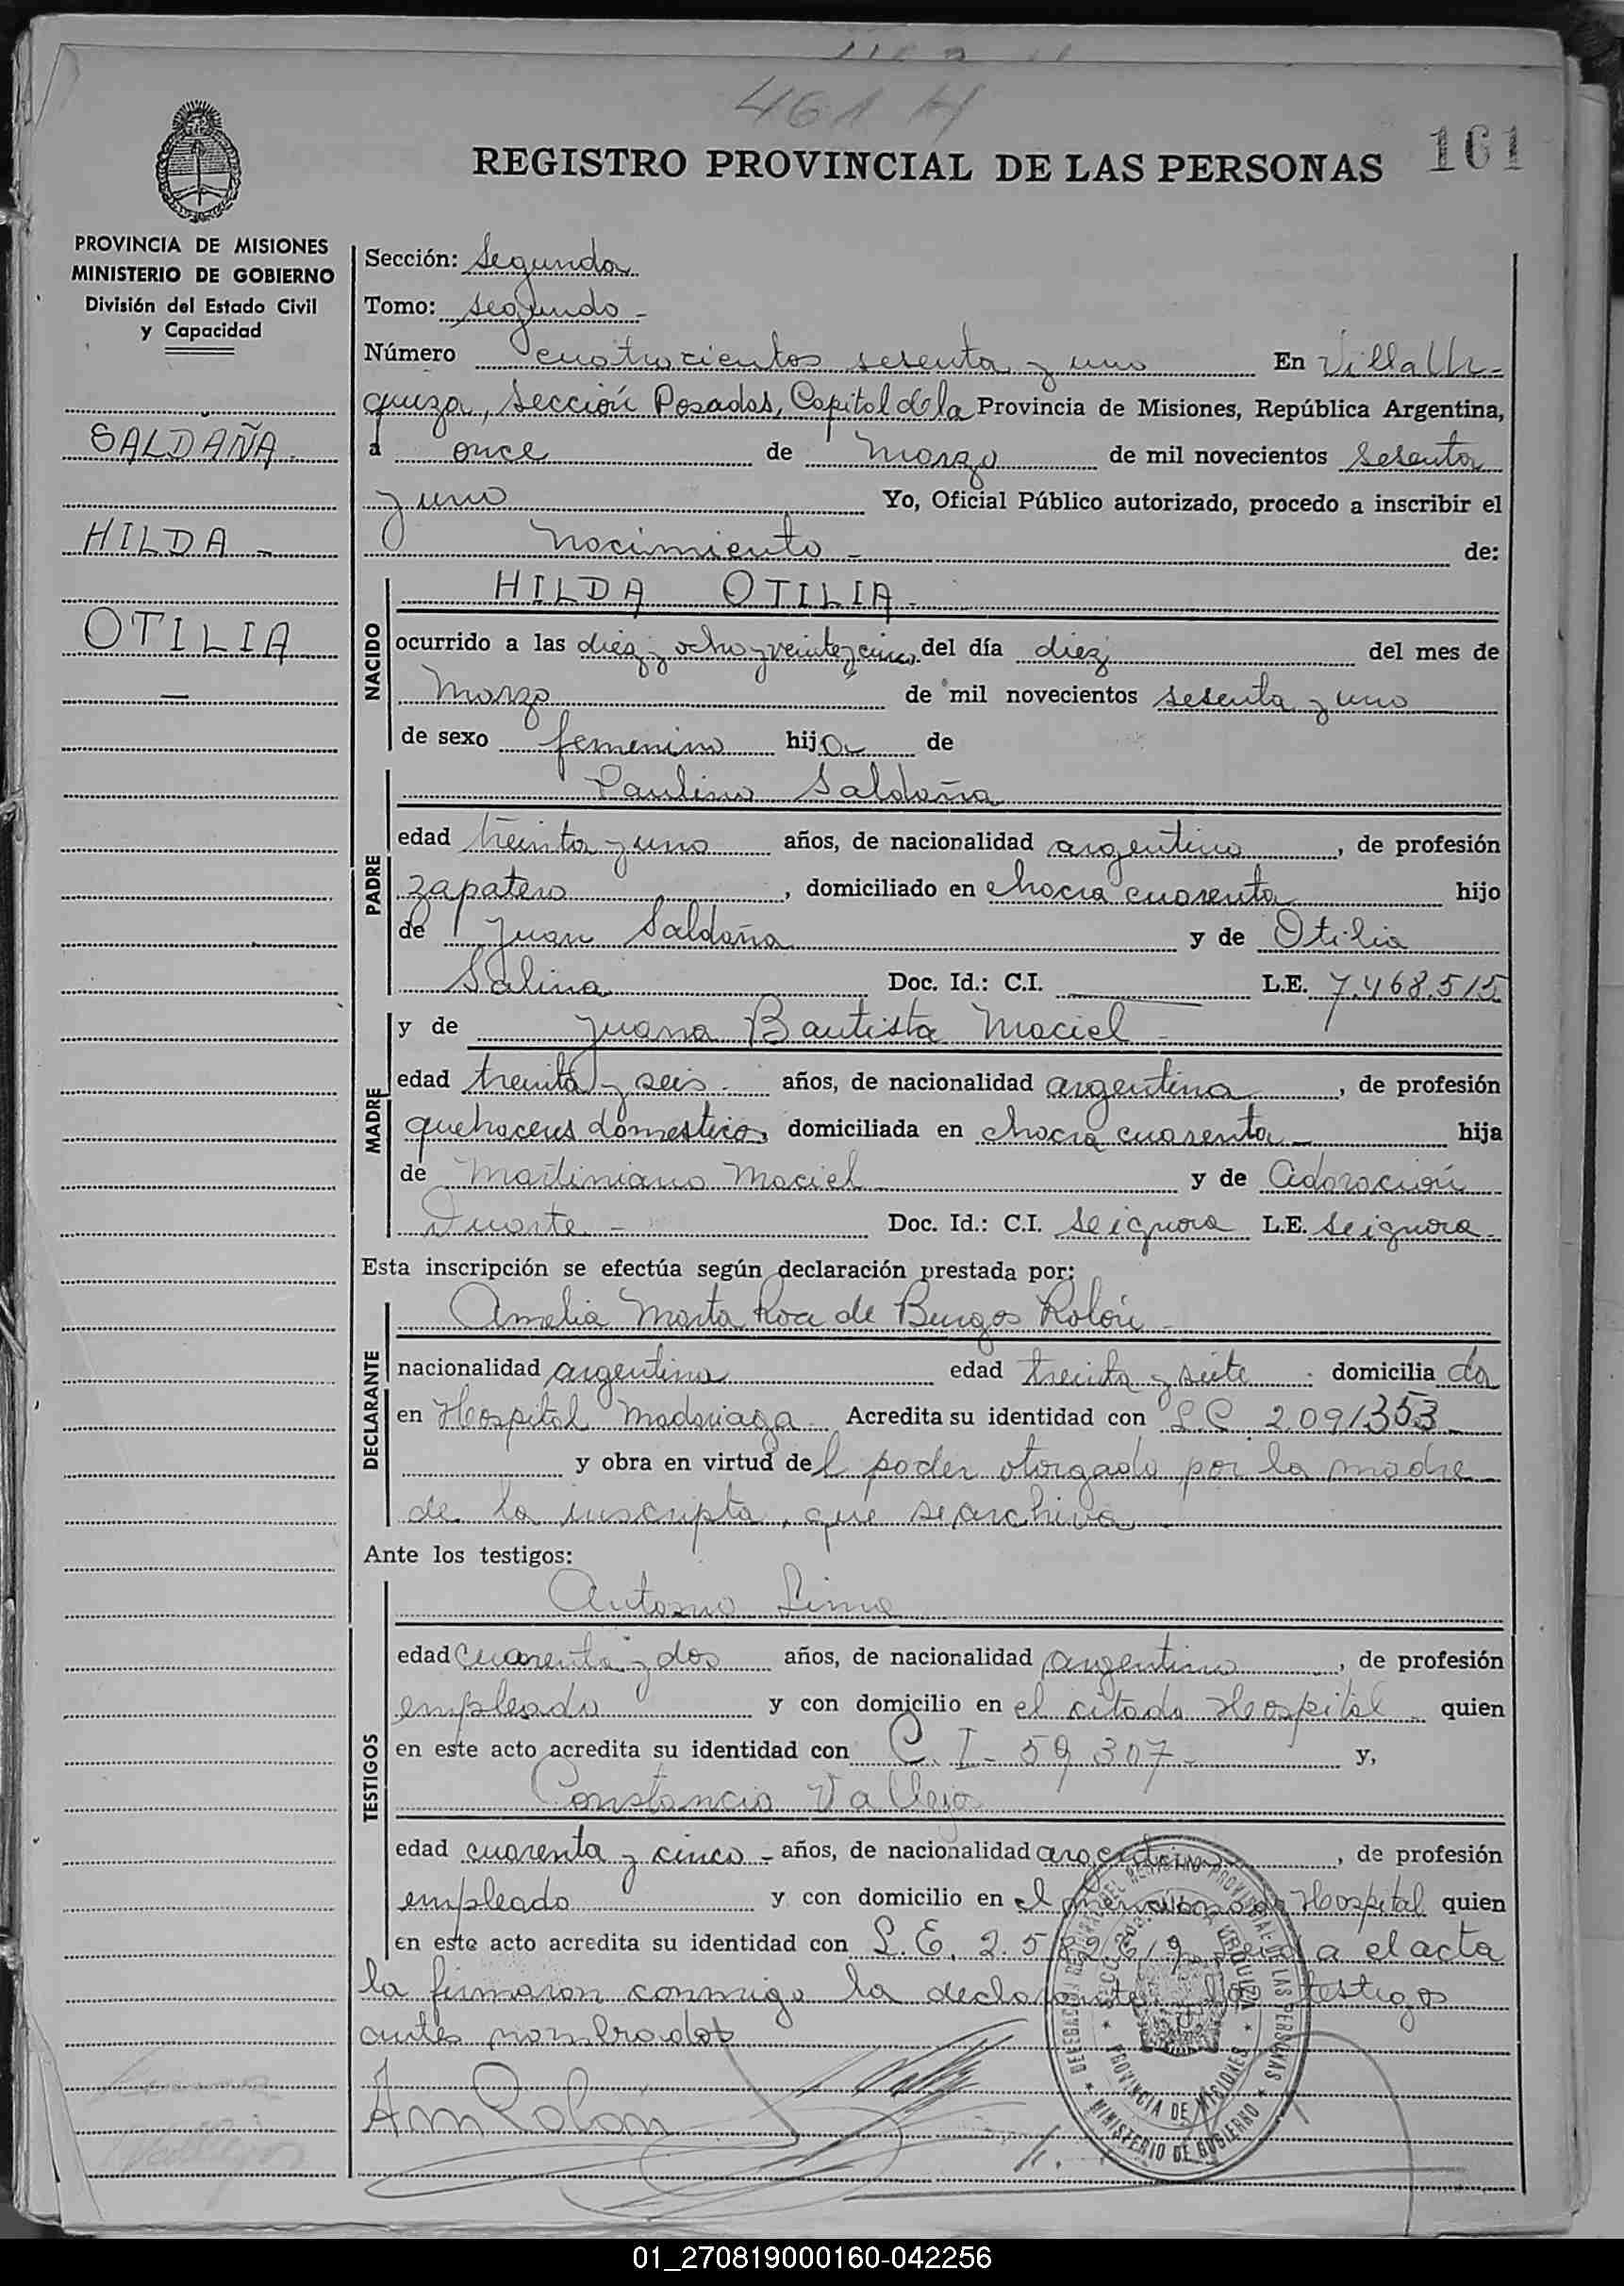 461 H
REGISTRO PROVINCIAL DE LAS PERSONAS
161
PROVINCIA DE MISIONES
MINISTERIO DE GOBIERNO
División del Estado Civil
y Capacidad
SALDAÑA -
HILDA -
OTILIA
-
Sección: Segunda
Tomo: segundo -
Número cuatrocientos sesenta y uno En Villa Ur-
quiza, Sección Posadas, Capital de la Provincia de Misiones, República Argentina,
a once de Marzo de mil novecientos sesenta
y uno Yo, Oficial Público autorizado, procedo a inscribir el
Nacimiento - de:
NACIDO
HILDA OTILIA -
ocurrido a las diez y ocho y veinte y cinco del día diez del mes de
Marzo de mil novecientos sesenta y uno
de sexo femenino hija de
PADRE
Paulino Saldaña
edad treinta y uno años, de nacionalidad argentino, de profesión
zapatero, domiciliado en chacra cuarenta hijo
de Juan Saldaña y de Otilia
Salina Doc. Id.: C.I. L.E. 7.468.515
MADRE
y de Juana Bautista Maciel -
edad treinta y seis - años, de nacionalidad argentina, de profesión
quehaceres domesticos, domiciliada en chacra cuarenta - hija
de Martiniano Maciel y de Adoración
Duarte - Doc. Id.: C.I. se ignora L.E. se ignora -
Esta inscripción se efectúa según declaración prestada por:
DECLARANTE
Amelia Marta Roa de Burgos Rolón
nacionalidad argentina edad treinta y siete domicilia da
en Hospital Madariaga Acredita su identidad con L.C. 2.091353 -
y obra en virtud del poder otorgado por la madre
de la inscripta, que se archiva
Ante los testigos:
TESTIGOS
Antonio Lima
edad cuarenta y dos años, de nacionalidad argentino, de profesión
empleado y con domicilio en el citado Hospital quien
en este acto acredita su identidad con C. I - 59 307 - y,
Constancio Vallejo
edad cuarenta y cinco - años, de nacionalidad argentino, de profesión
empleado y con domicilio en el mencionado Hospital quien
en este acto acredita su identidad con L.E. 2.5 a el acta
la firmaron conmigo la declarante y los testigos
antes nombrados
AmRolón
DELEGACION DEL REGISTRO PROVINCIAL DE LAS PERSONAS
URQUIZA
PROVINCIA DE MISIONES
MINISTERIO DE GOBIERNO
01_270819000160-042256